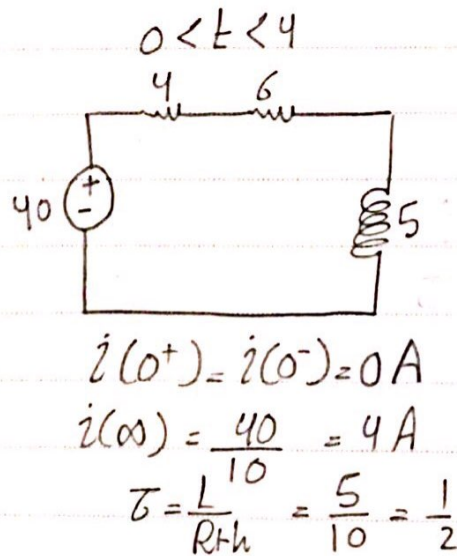 0 < t < 4
4 6
+
40
-
5
i(0⁺) = i(0⁻) = 0 A
i(∞) = 40/10 = 4 A
τ = L/Rth = 5/10 = 1/2